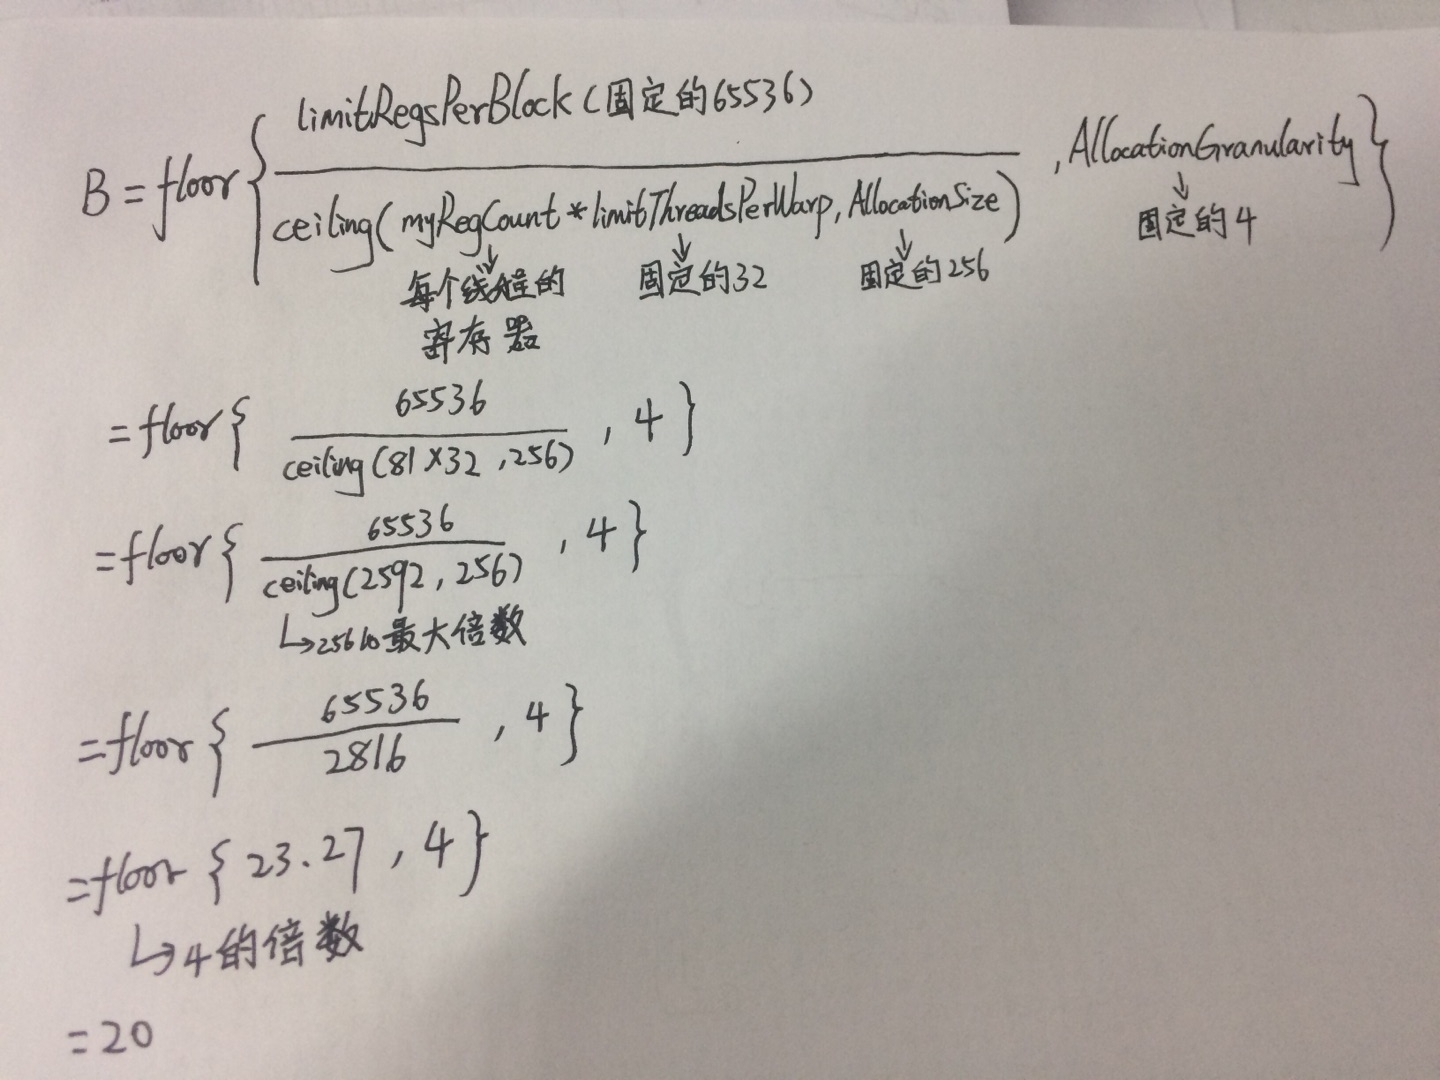 limitRegsPerBlock(固定的65536)
B = floor{ ———— , AllocationGranularity }
ceiling(myRegCount * limitThreadsPerWarp, AllocationSize)
↓ 固定的4
↓ ↓ ↓
每个线程的 固定的32 固定的256
寄存器
65536
= floor{ ———— , 4 }
ceiling(81×32 ,256)
65536
= floor{ ———— , 4 }
ceiling(2592, 256)
↳256的最大倍数
65536
= floor{ ———— , 4 }
2816
= floor { 23.27 , 4 }
↳4的倍数
= 20